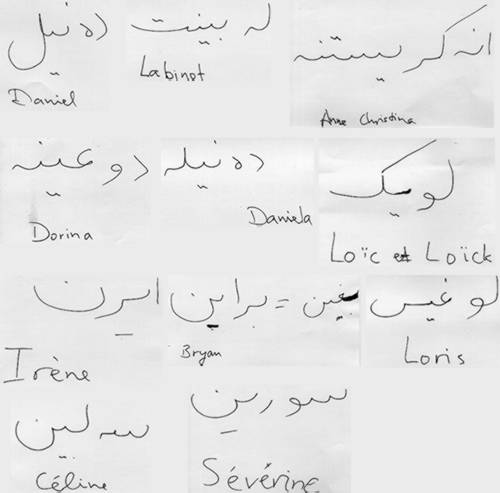 ده نيل
Daniel
له بينت
Labinot
انه كريستنه
Anne Christina
دو عينه
Dorina
ده نيله
Daniela
لويك
Loïc et Loïck
ايرن
Irène
بغين = براين
Bryan
لو غيس
Loris
سه لين
Céline
سورين
Sévérine